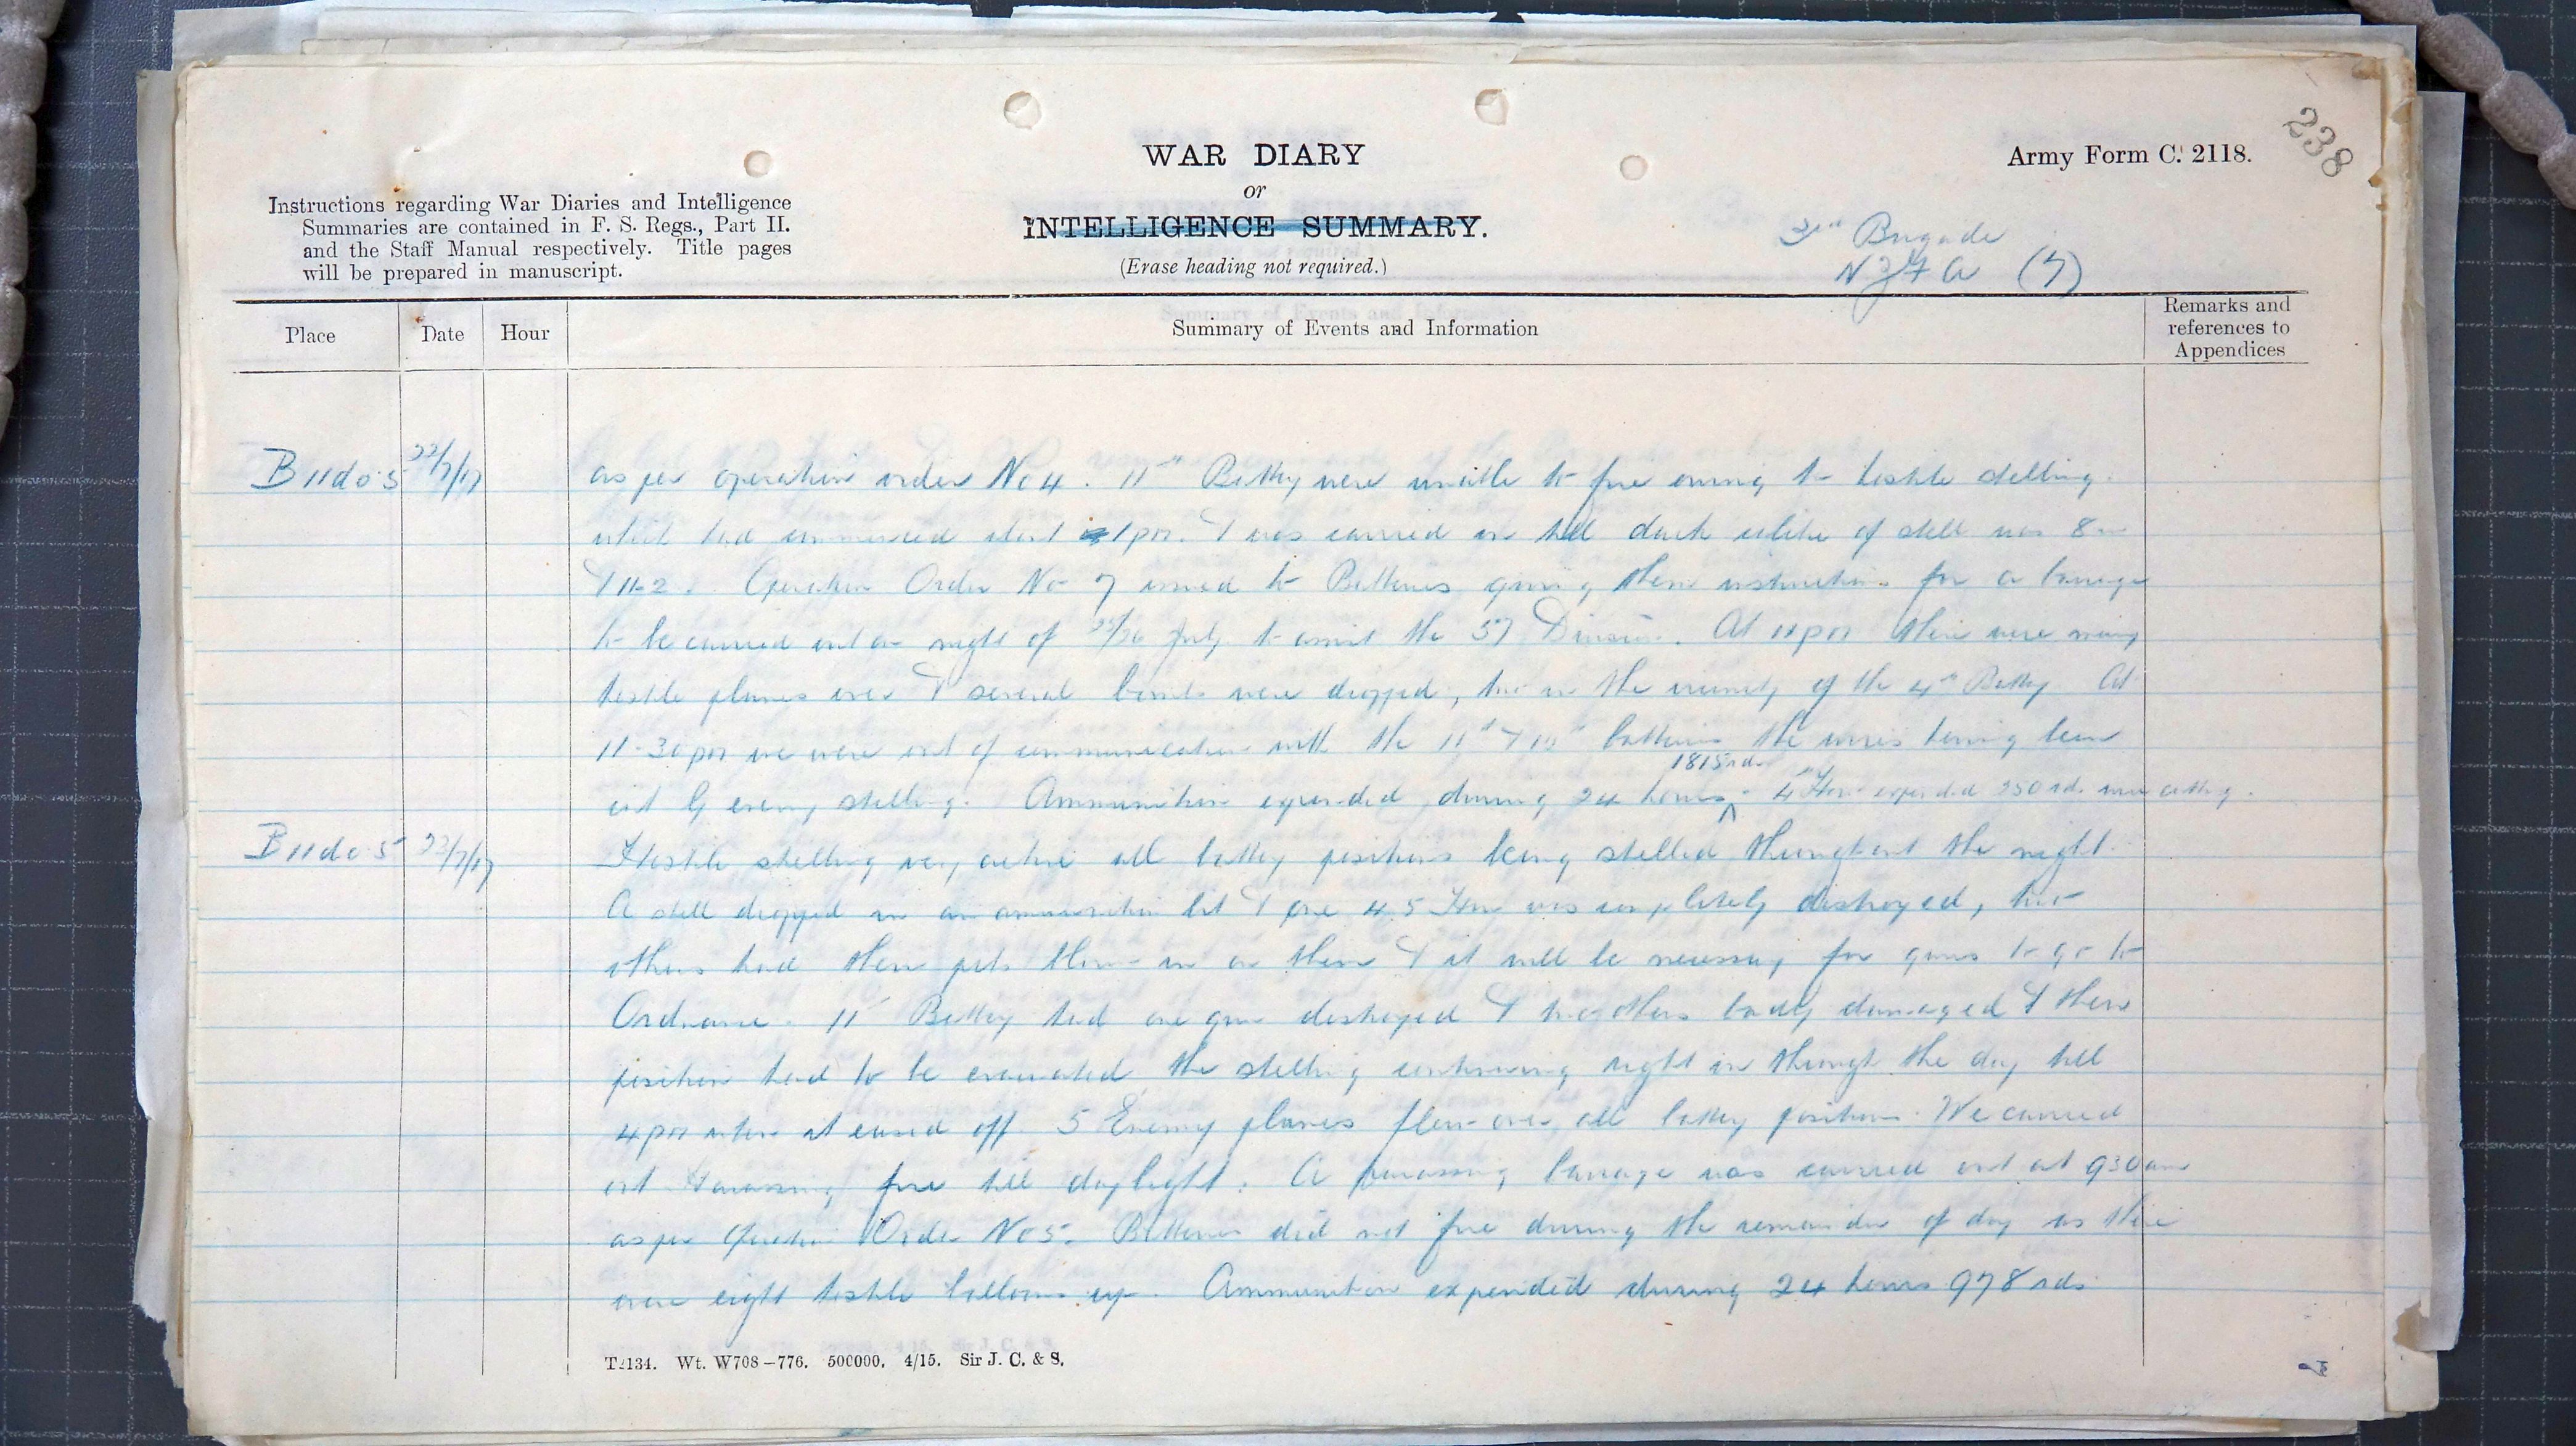 238
WAR DIARY
or
INTELLIGENCE SUMMARY.
(Erase heading not required.)
Army Form C. 2118.
Instructions regarding War Diaries and Intelligence
Summaries are contained in F. S. Regs., Part II.
and the Staff Manual respectively. Title pages
will be prepared in manuscript.
3rd Brigade
NZFA (7)
Place
Date
Hour
Summary of Events and Information
Remarks and
references to
Appendices
B11d0.5 22/7/17 as per operation order No 4. 11th Battery were unable to fire owing to hostile shelling
which had commenced about 1pm. & was carried on till dark calibre of shell was 8in
& 11.2. Operation Order No 7 issued to Batteries giving them instructions for a barrage
to be carried out on night of 25/26 July to assist the 57 Division. At 11pm there were many
hostile planes over & several bombs were dropped, two in the vicinity of the 4th Battery At
11-30pm we were out of communication with the 11th & batteries the wires having been
cut by enemy shelling. Ammunition expended during 24 hours 1815 rds. 4 How expended 250 rds. wire cutting.
B11d0.5 23/7/17 Hostile shelling very active all battery positions being shelled throughout the night.
A shell dropped in an ammunition pit & one 4.5 How was completely destroyed, two
others had there pits blown in on them & it will be necessary for guns to go to
Ordnance. 11 Battery had one gun destroyed & two others badly damaged & there
position had to be evacuated the shelling continuing right on through the day till
4pm when it eased off. 5 Enemy planes flew over all battery positions. We carried
out Harassing fire till daylight. A harassing barrage was carried out at 930am
as per Operation Order No5. Batteries did not fire during the remainder of day as there
were eight hostile balloons up. Ammunition expended during 24 hours 978 rds
T2134. Wt. W708-776. 500000. 4/15. Sir J. C. & S.